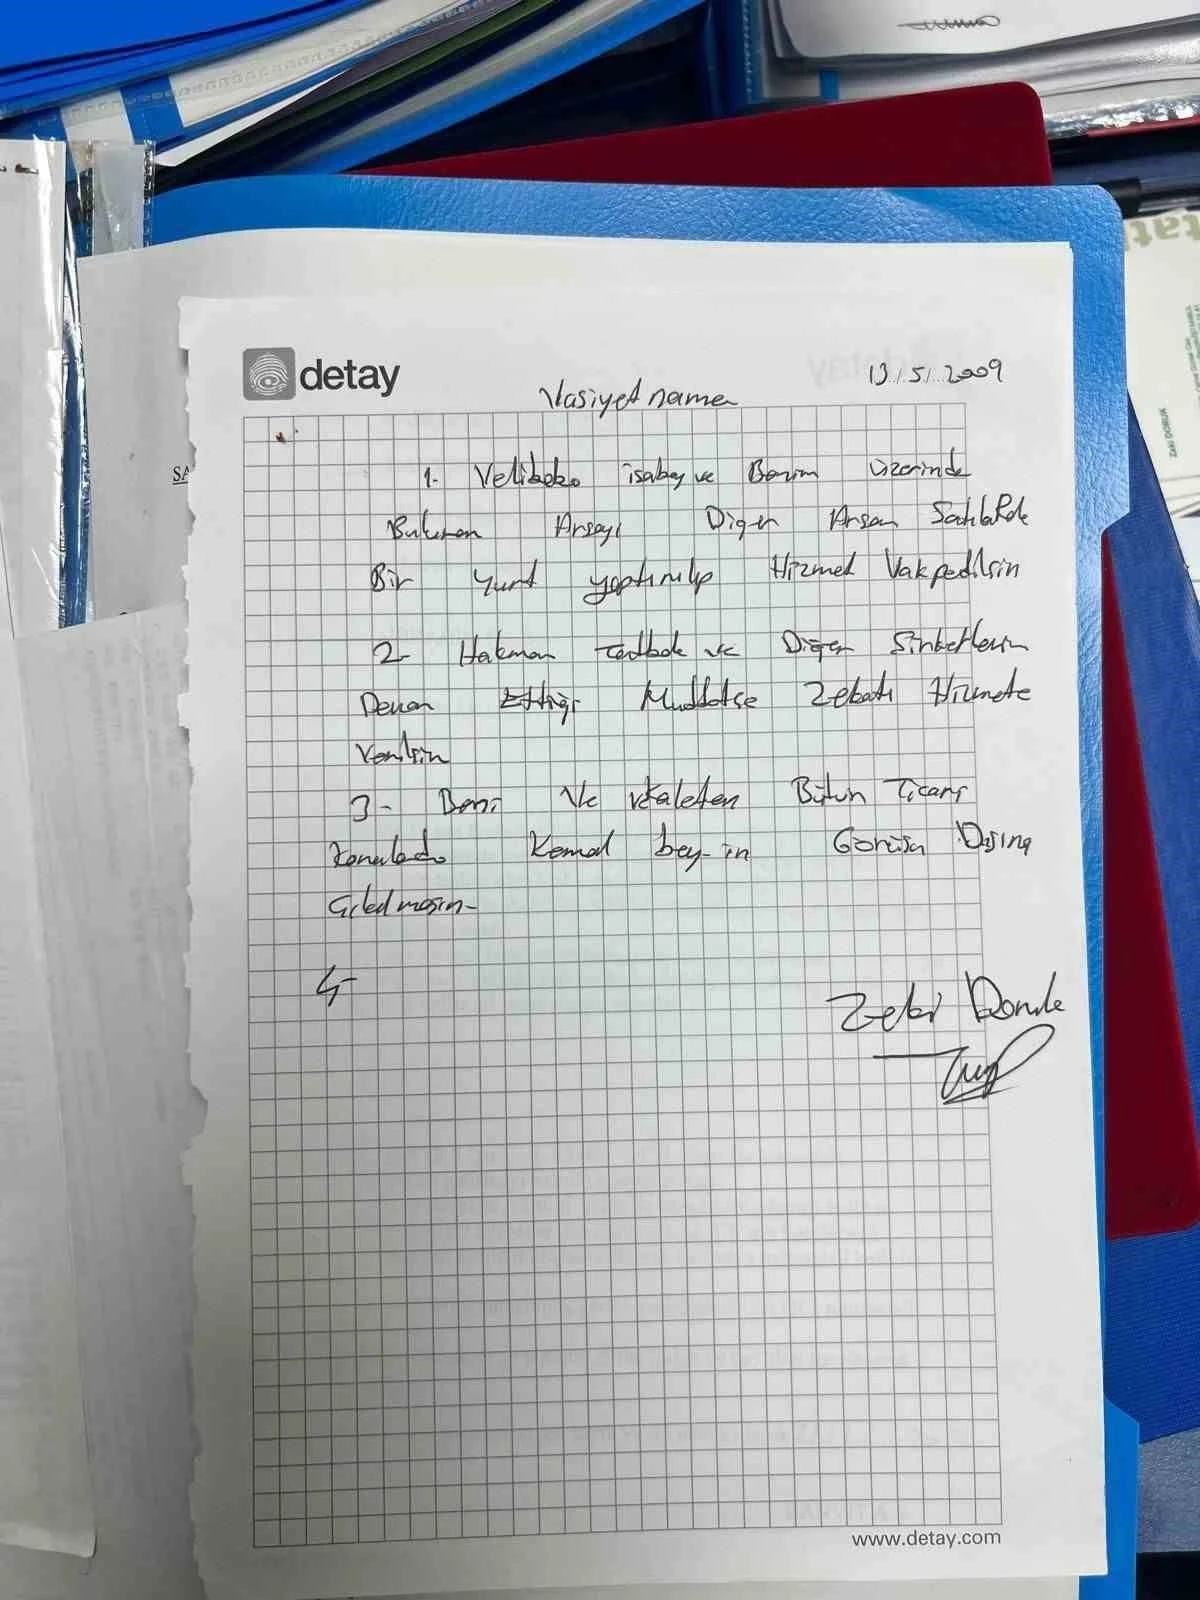 SA
detay
13/5/2009
Vasiyet name
1- Velibaba isabey ve Benim üzerinde
Bulunan Arsayı Diğer Arsam Satılarak
Bir Yurt yaptırılıp Hizmet Vakpedilsin
2- ve Diğer Şirketlerin
Devam Ettiği Muddetçe Zekatı Hizmete
Verilsin
3- Beni Ve vekaleten Bütün Ticari
Konularda Kemal bey-in Görüşü Dışına
Çıkılmasın-
4-
Zeki Doruk
www.detay.com
ZEKİ DORUK